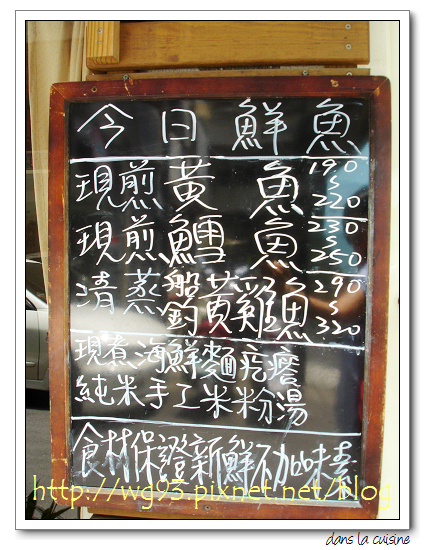 今日鮮魚
現煎黃魚 190 ~ 220
現煎鱈魚 230 ~ 250
清蒸船釣黃雞魚 290 ~ 320
現煮海鮮麵疙瘩
純米手工米粉湯
食材保證新鮮不加味素
http://wg93.pixnet.net/blog
dans la cuisine